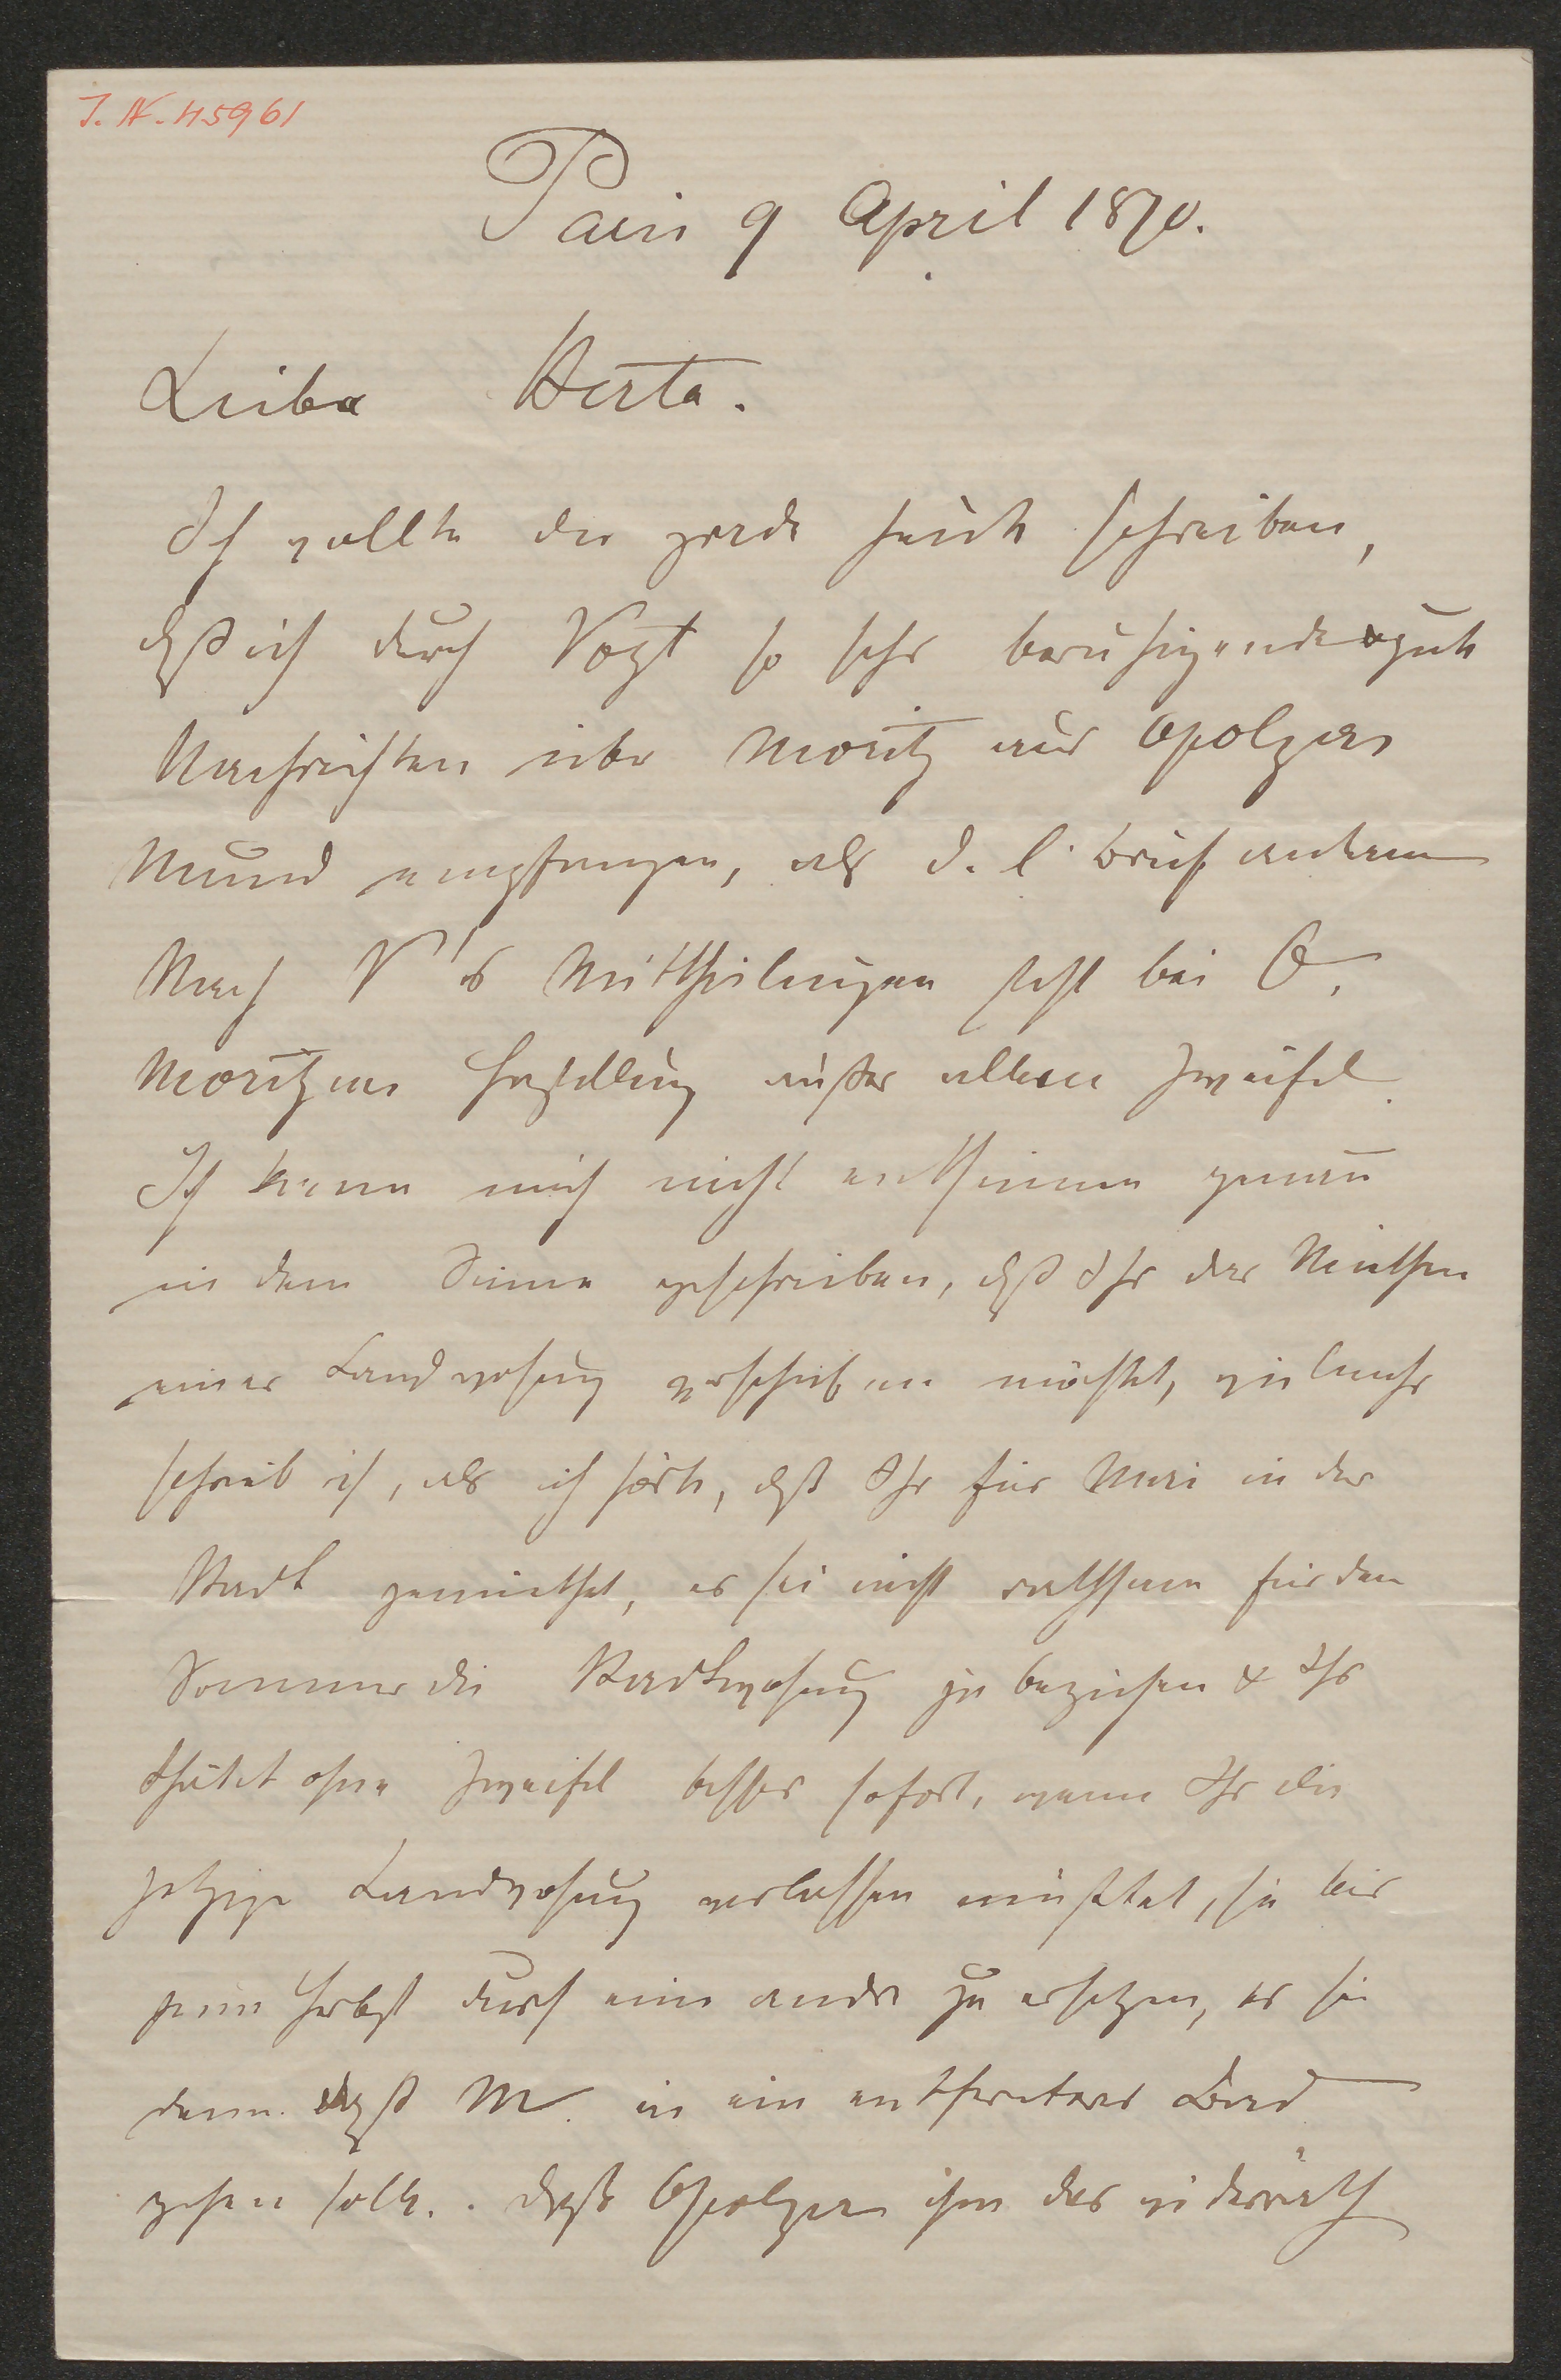 I. N. 45961
Paris 9 April 1870.
Liebe Herta.
Ich wollte dir grade heute schreiben,
dß ich durch Vogt so sehr beruhigende gute
Nachrichten über Moritz aus Opolzers
Mund empfangen, als d. l. Brief ankam
Nach V's Mittheilungen steht bei O.
Moritzens Herstellung außer allem Zweifel.
Ich kann mich nicht entsinnen genau
in dem Sinne geschrieben, dß Ihr das Miethen
einer Landwohnung verschieben möchtet, vielmehr
schrieb ich, als ich hörte, dß Ihr für Mai in der
Stadt gemiethet, es sei nicht rathsam für den
Sommer die Stadtwohnung zu beziehen & Ihr
thätet ohne Zweifel besser sofort, wenn Ihr die
jetzige Landwohnung verlassen müßtet, sie bis
zum Herbst durch eine andre zu ersetzen, es sei
denn daß M. in ein entferntes Bad
gehen solle. Daß Opolzer ihm das widerräth